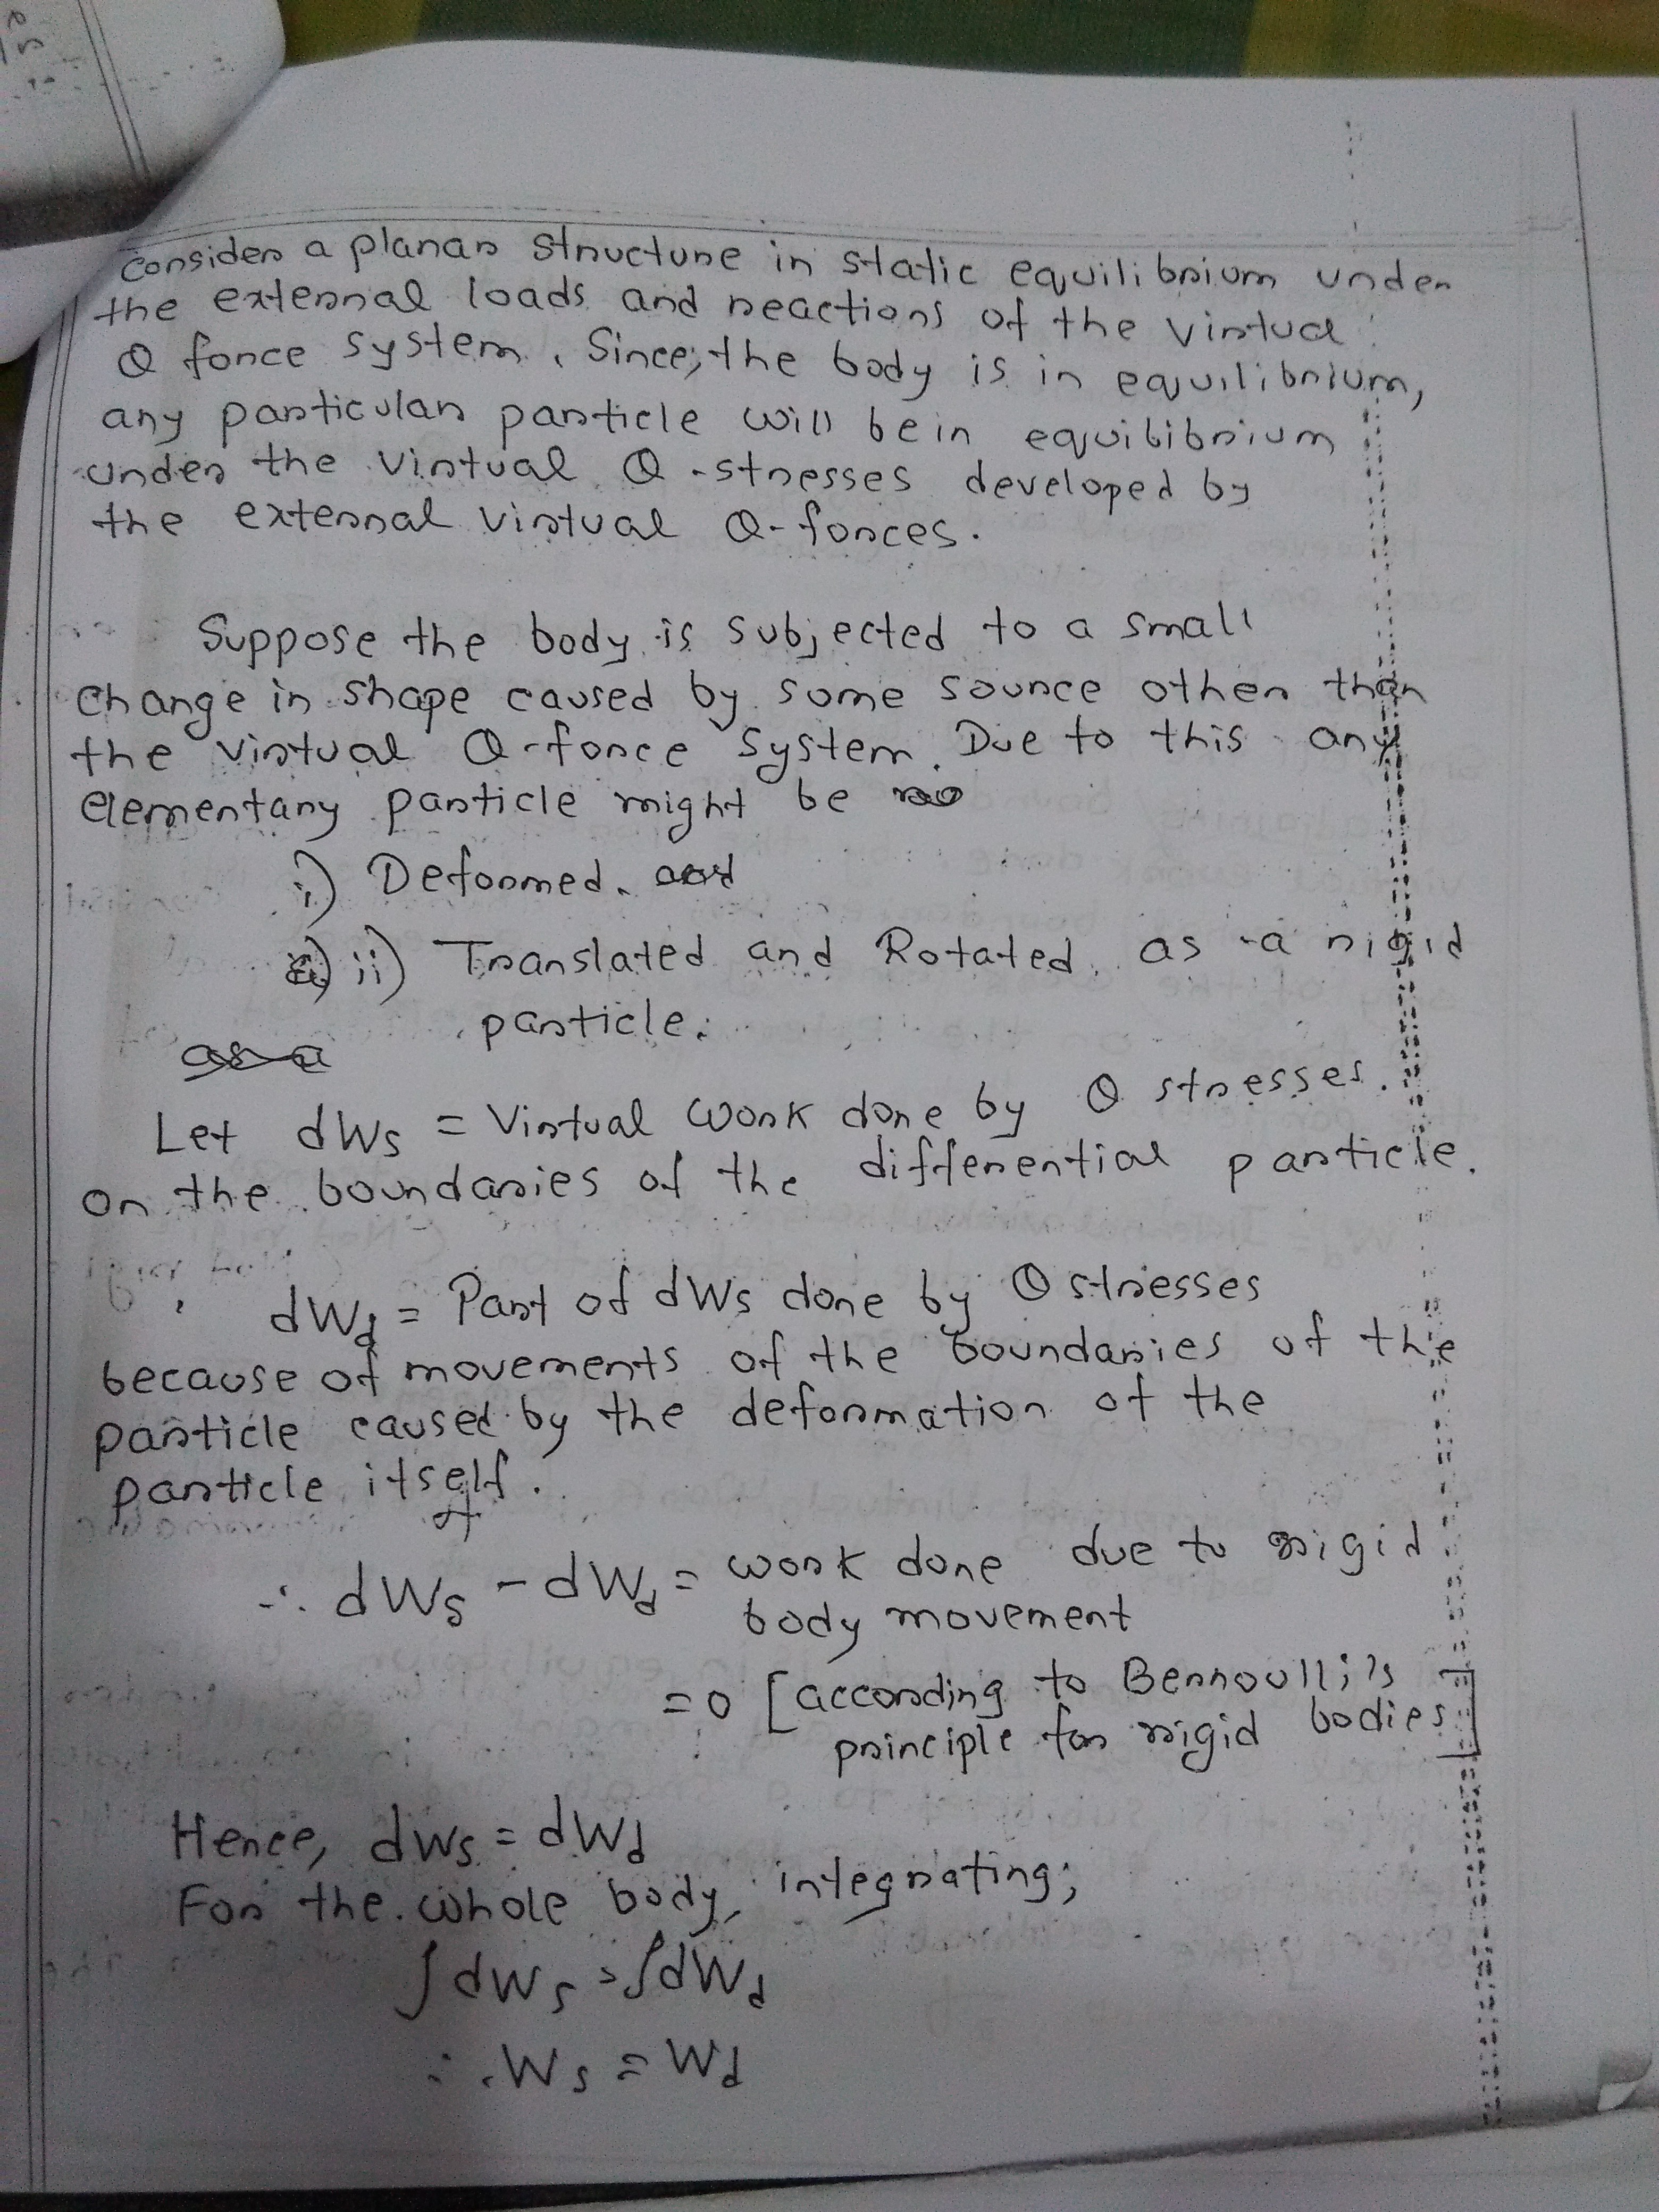 Consider a planar structure in static equilibrium under
the external loads and reactions of the virtual
Q force system. Since, the body is in equilibrium,
any particular particle will be in equilibrium
under the virtual Q-stresses developed by
the external virtual Q-forces.
Suppose the body is subjected to a small
change in shape caused by some source other than
the virtual Q-force system. Due to this any
elementary particle might be
i) Deformed.
ii) Translated and Rotated as a rigid
particle.
Let dWs = Virtual work done by Q stresses.
on the boundaries of the differential particle.
dWd = Part of dWs done by Q stresses
because of movements of the boundaries of the
particle caused by the deformation of the
particle itself.
∴ dWs - dWd = work done due to rigid
body movement
= 0 [according to Bernoulli's
principle for rigid bodies]
Hence, dWs = dWd
For the whole body, integrating;
∫dWs = ∫dWd
∴ Ws = Wd